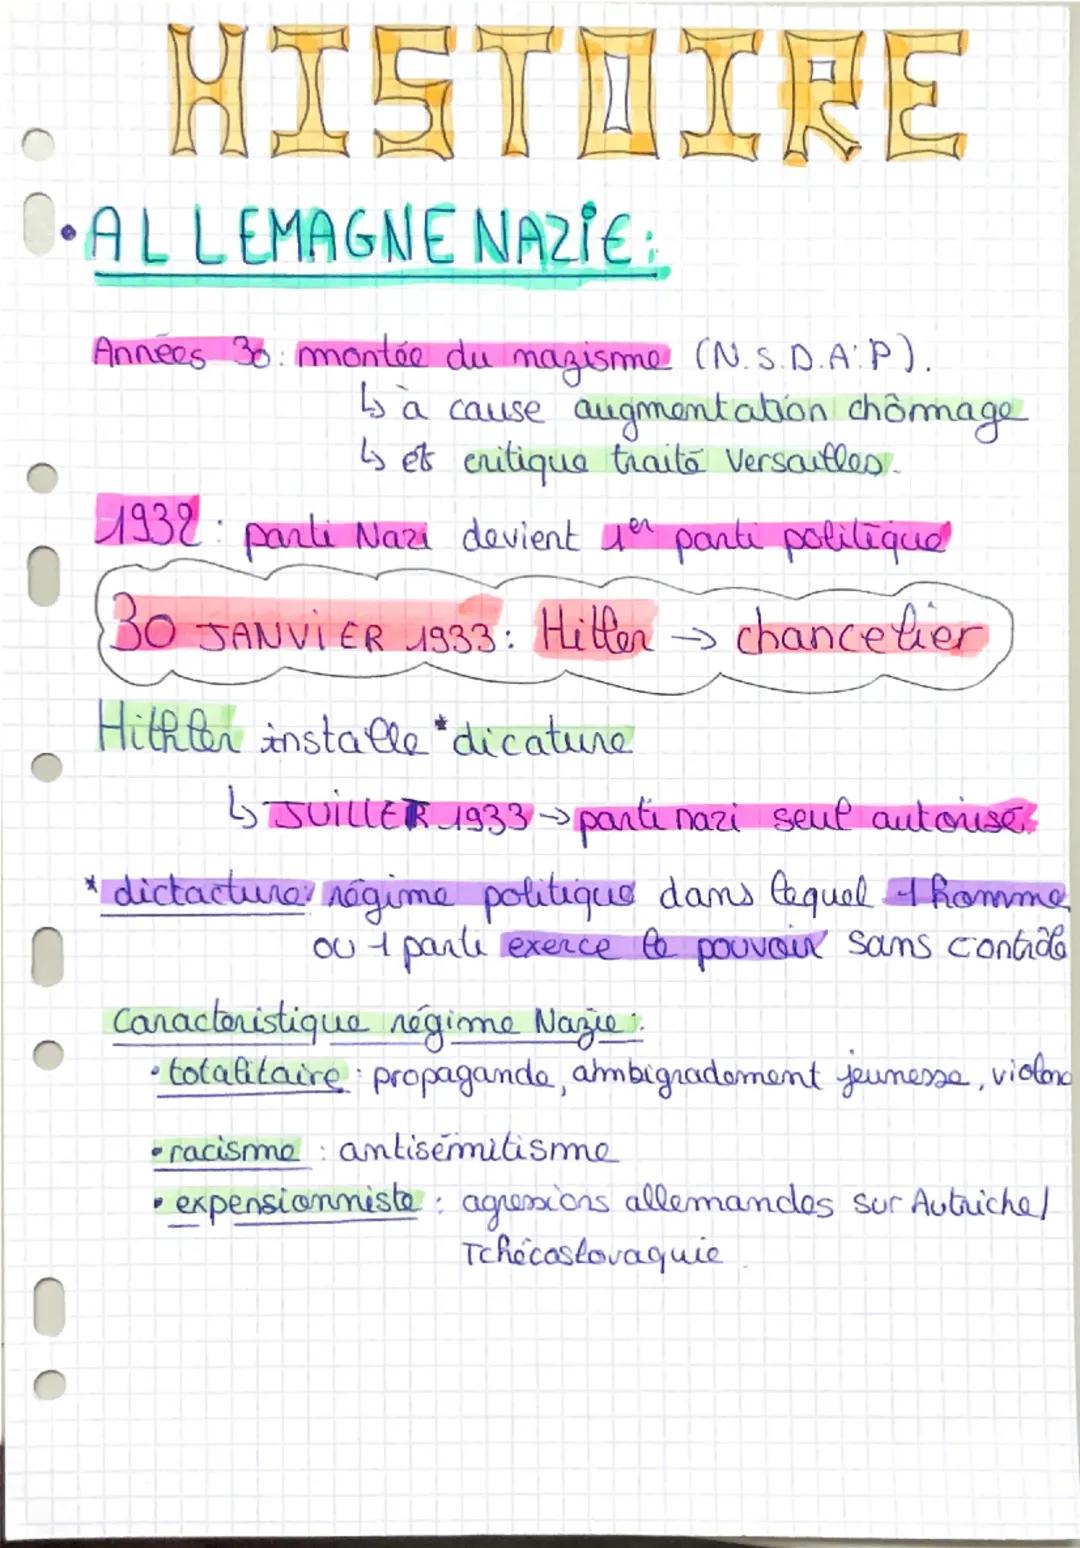 HISTOIRE
• ALLEMAGNE NAZIE :
Années 30 : montée du nazisme (N.S.D.A.P).
↳ à cause augmentation chômage
↳ et critique traité Versailles.
1932 : parti Nazi devient 1er parti politique
30 JANVIER 1933 : Hitler → chancelier
Hithler installe *dicature
↳ JUILLET 1933 → parti nazi seul autorisé
* dictacture: régime politique dans lequel 1 homme
ou 1 parti exerce le pouvoir sans contrôle
Caractéristique régime Nazie :
• totalitaire : propagande, ahmbigradement jeunesse, violenc
• racisme : antisémitisme
• expensionniste : agressions allemandes sur Autriche /
Tchécoslovaquie.